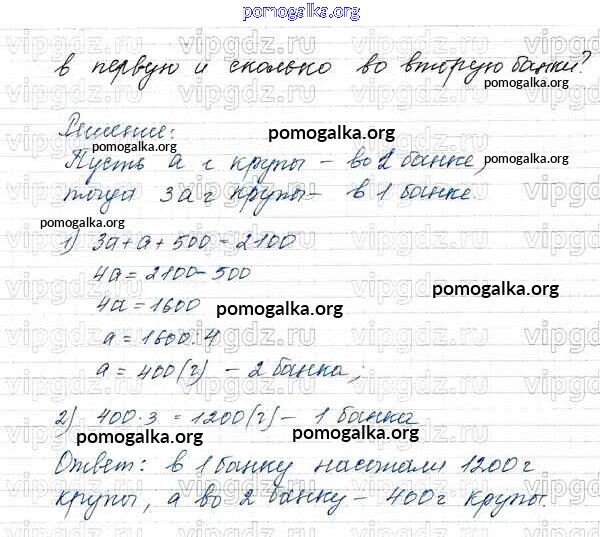 pomogalka.org
в первую и сколько во вторую банки?
pomogalka.org
Решение:
pomogalka.org
Пусть а г крупы – во 2 банке,
pomogalka.org
pomogalka.org
тогда 3а г крупы – в 1 банке.
pomogalka.org
1) 3а + а + 500 = 2100
4а = 2100 – 500
4а = 1600
pomogalka.org
pomogalka.org
а = 1600 : 4
а = 400 (г) – 2 банка;
2) 400 · 3 = 1200 (г) – 1 банка
pomogalka.org
pomogalka.org
Ответ: в 1 банку насыпали 1200 г
крупы, а во 2 банку – 400 г крупы.
vipgdz.ru vipgdz.ru vipgdz.ru